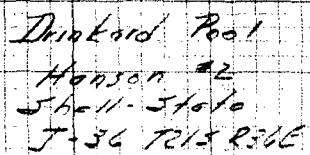 Drinkard Pool
Hanson #2
Shell-State
J-36 T21S R36E